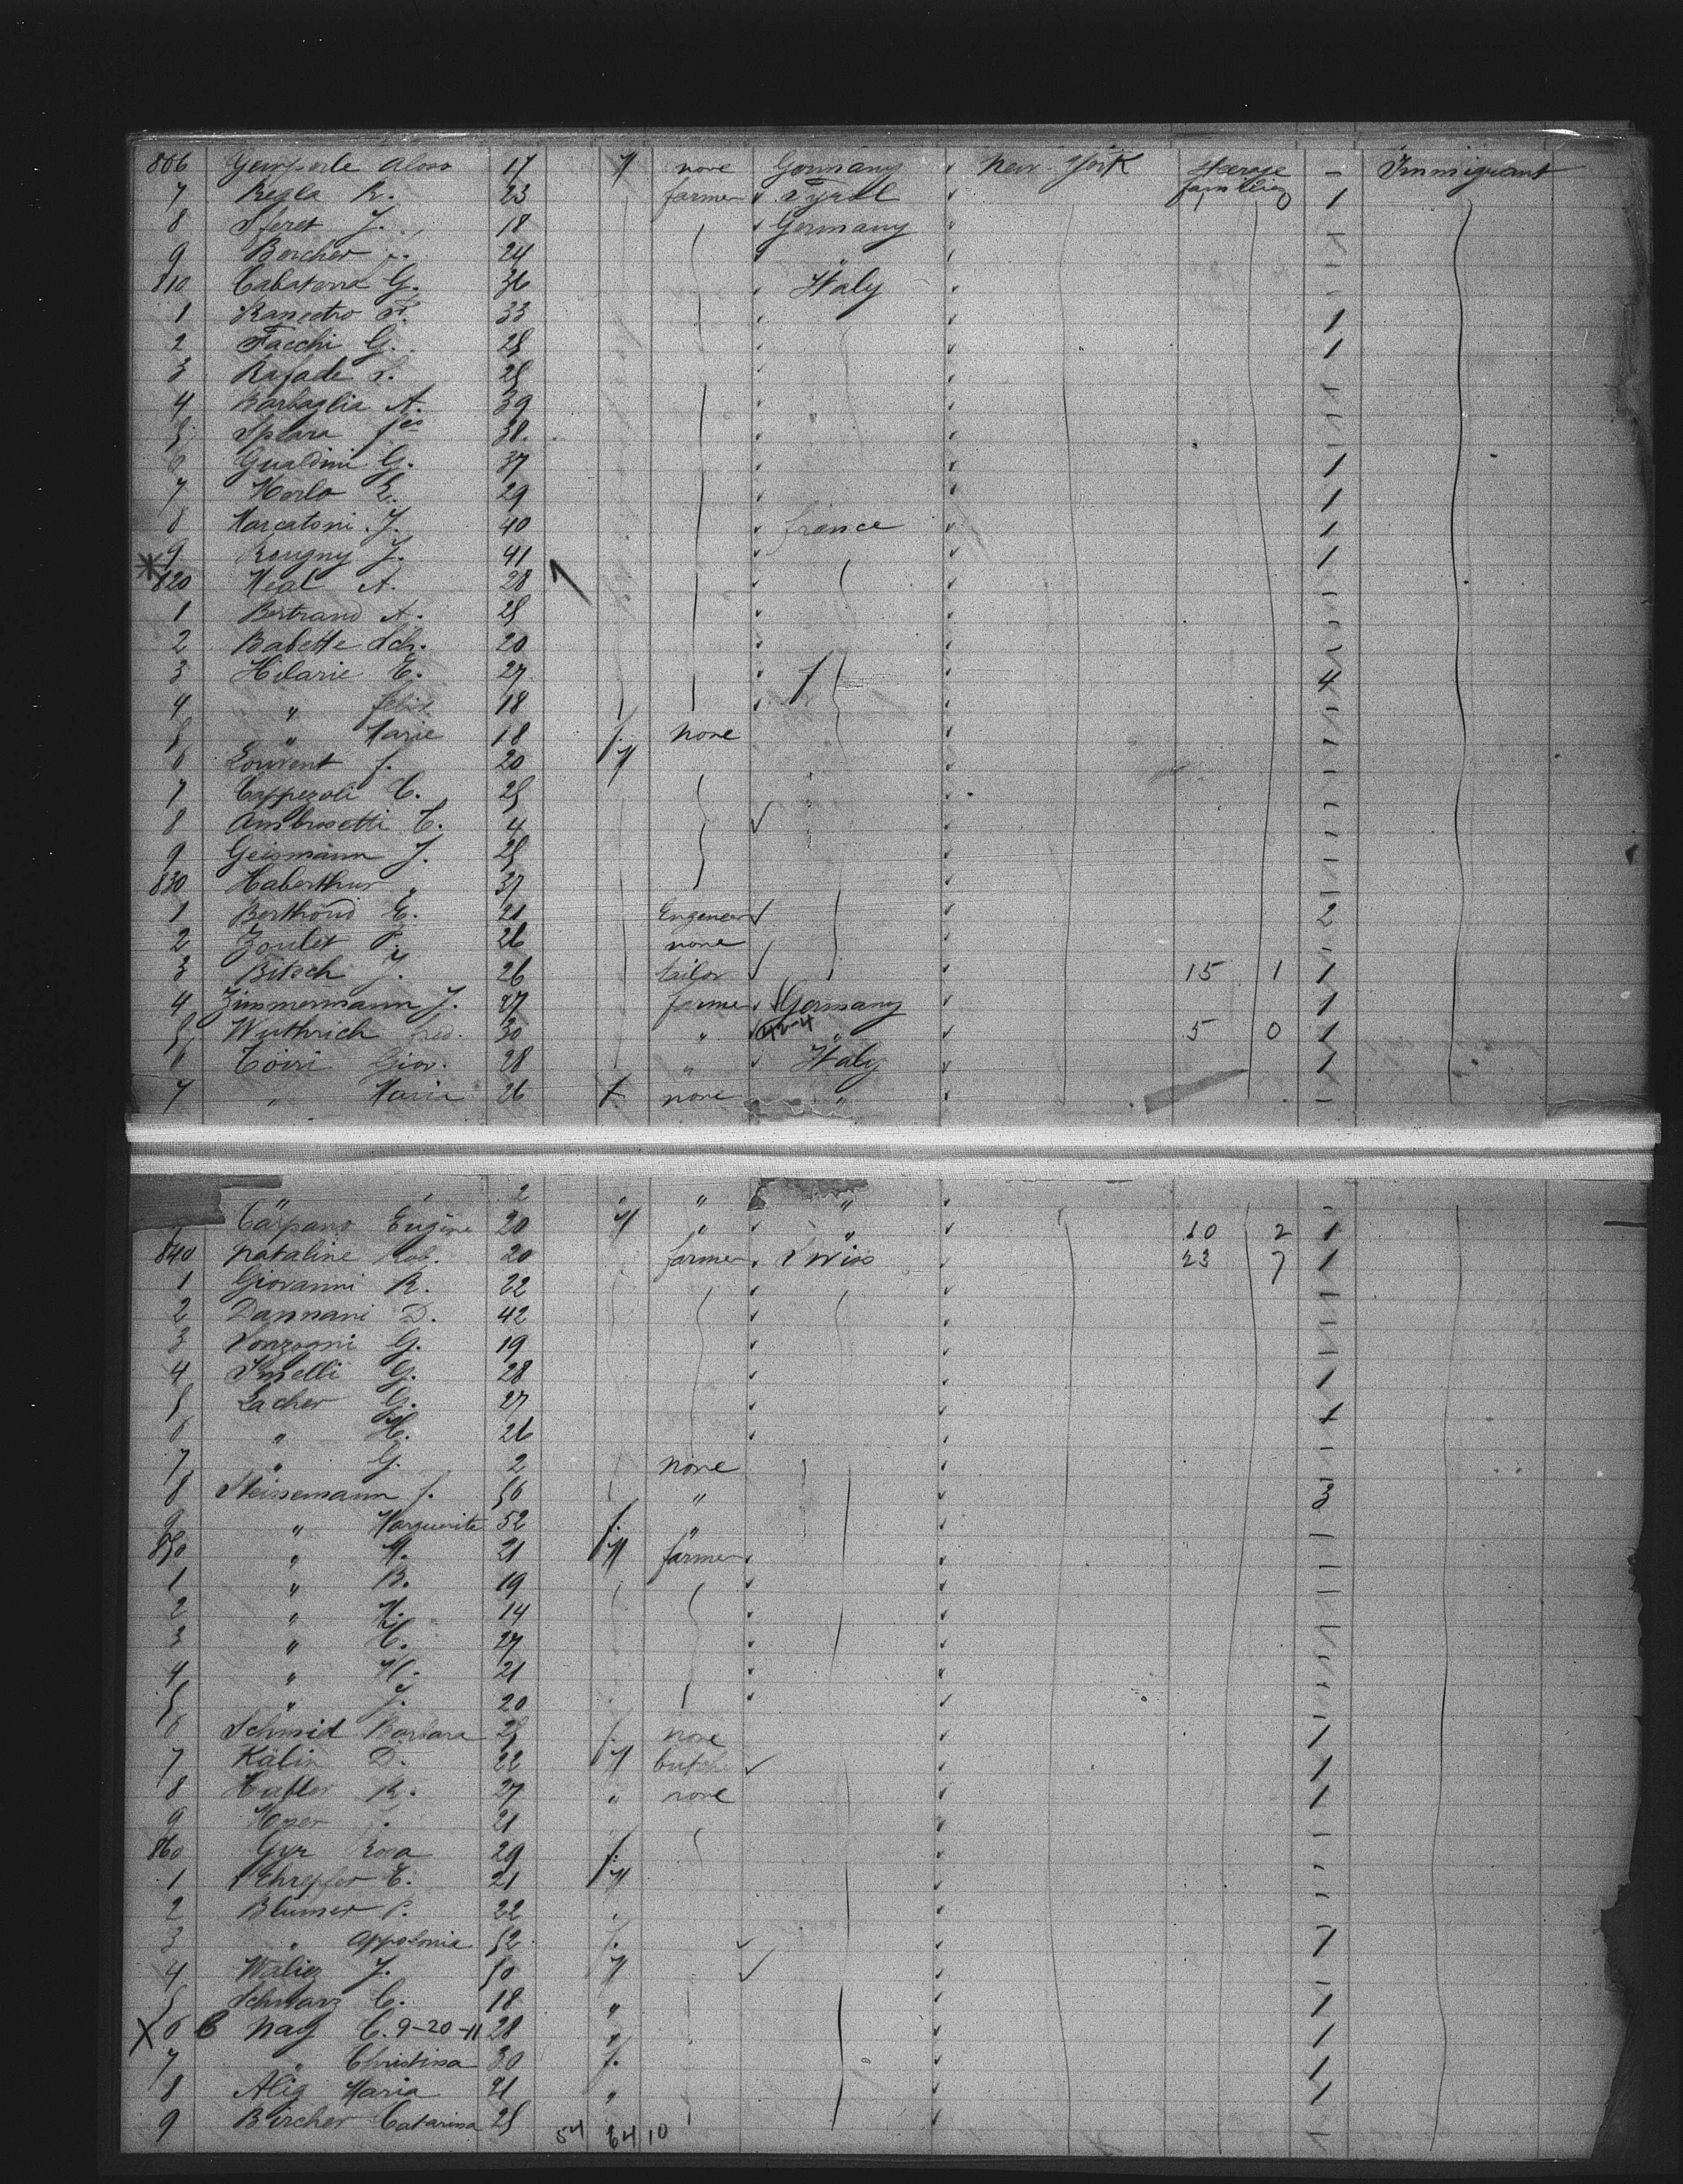 806 Aloss 17 M none Germany New York Steerage - Immigrant
7 Regla R. 23 farmer Tyrol families 1
8 Sferet J. 18 Germany
9 Borcher 24 "
810 G. 36 Italy
1 Ranectro F. 33 1
2 Facchi G. 25 1
3 Rafade 25
4 Barbaglia A. 39
5 38
6 Gualdini G. 37 1
7 Merlo E. 29 1
8 Marcatoni J. 40 france 1
9 Rougny J. 41 1
820 A. 28
1 Bertrand A. 25
2 Babette Sch. 20
3 Hilarie E. 27 4
4 " felix 18
5 " Marie 18 f. none
6 Louvent f. 20 M
7 Cappezoli C. 25
8 Ambrosetti C. 4
9 Geismann J. 25
830 Haberthur " 37
1 Berthoud E. 21 Engeneer 2
2 Zoulet 26 none
3 Bitsch J. 26 tailor 15 1 1
4 Zimmermann J. 47 farmer Germany 1
5 Wuthrich fred. 30 " " 5 0 1
6 Toiri Giov. 28 " Italy 1
7 " Maria 26 f none " -
2 " " "
Caspano Eugène 20 M " " 10 2 1
840 Nataline Rob. 20 farmer Swiss 23 7 1
1 Giovanni R. 22
2 Dannani D. 42
3 Vonzogni G. 19
4 G. 28 1
5 Lacher G. 27 1
6 " H. 26
7 " G. 2 none
8 Meissemann f. 50 " 3
9 " Marguerite 52 f. "
850 " M. 21 M farmer
1 " B. 19
2 " M. 14
3 " H. 27
4 " M. 21
5 " J. 20
6 Schmid Barbara 25 f. none 1
7 Kälin D. 22 M butcher 1
8 R. 27 " none 1
9 Moser 21
860 Gyr Rosa 29 f.
1 Schrepfer E. 21 M
2 Blumer P. 22
3 " Appolonia 52 f.
4 Waliez J. 50 M
5 Schwarz C. 18 " 1
X 6 C. 9-20-11 28 " 1
7 " Christina 30 f. 1
8 Alig Maria 21 " 1
9 Bircher Catarina 25
54 64 10